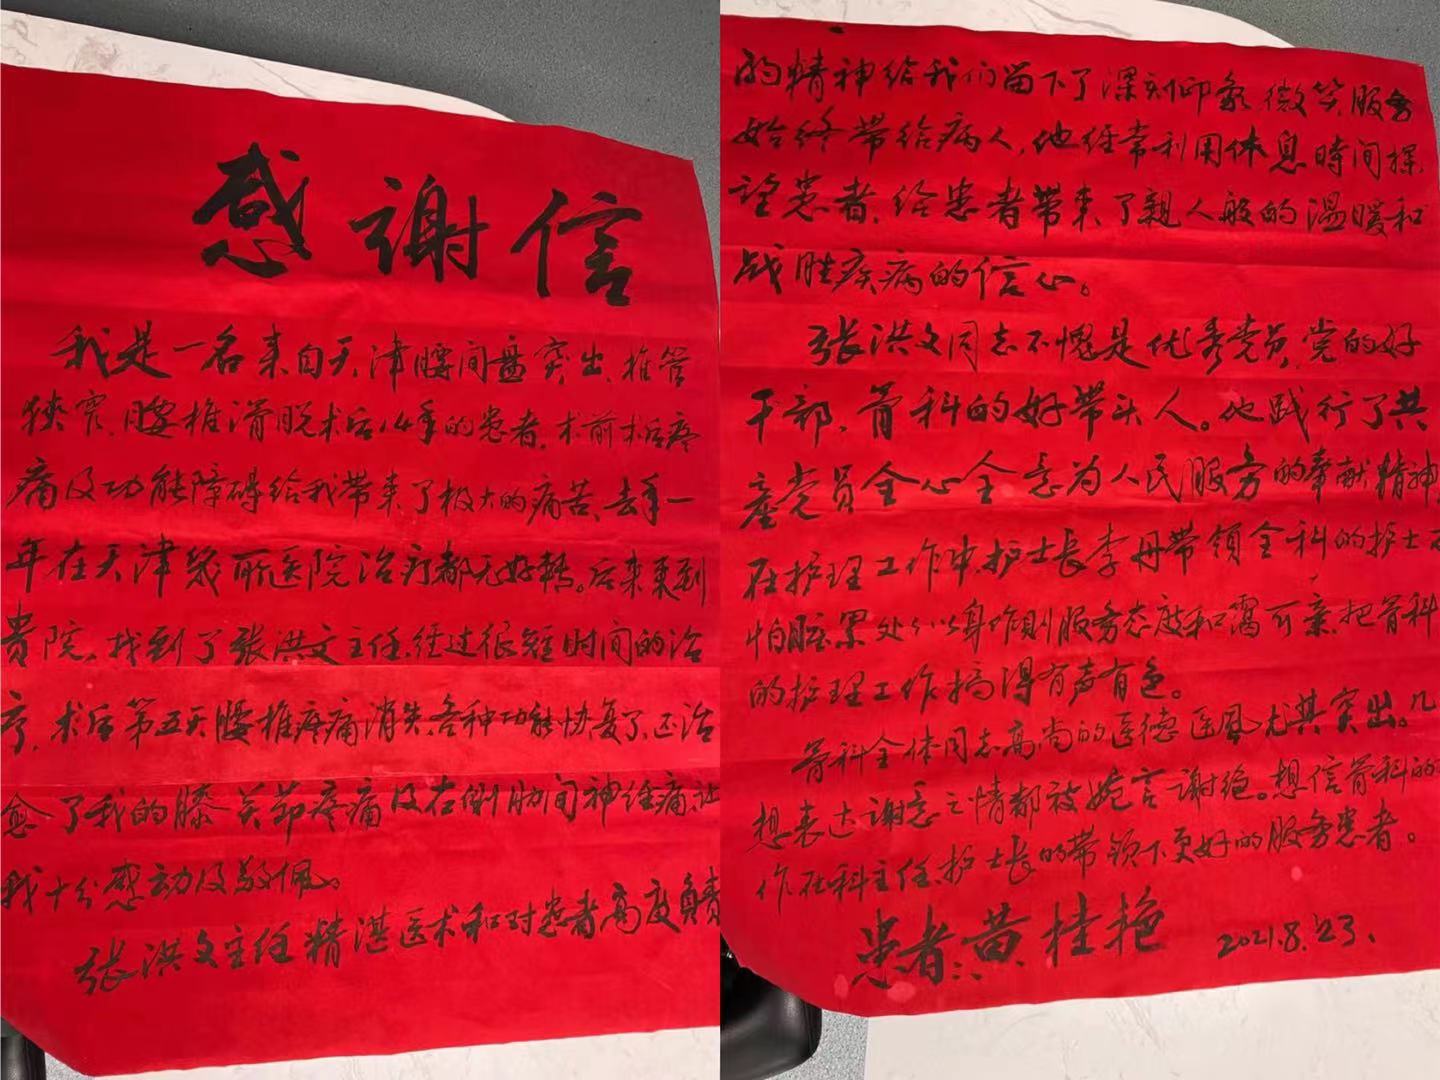 感谢信
我是一名来自天津腰间盘突出、椎管
狭窄、腰椎滑脱术后14年的患者，术前术后疼
痛及功能障碍给我带来了极大的痛苦、去年一
年在天津幾所医院治疗都无好轉。后来来到
贵院，找到了张洪文主任，经过很短时间的治
疗，术后第五天腰椎疼痛消失，各种功能恢复了，还治
愈了我的膝关节疼痛及右侧肋间神经痛，让
我十分感动及敬佩。
张洪文主任精湛医术和对患者高度負责
的精神给我们留下了深刻印象，微笑服务
始终带给病人，他经常利用休息時间探
望患者，给患者带来了親人般的温暖和
战胜疾病的信心。
张洪文同志不愧是优秀党员，党的好
干部，骨科的好带头人。他践行了共
产党员全心全意为人民服务的奉献精神，
在护理工作中，护士长李丹带领全科的护士不
怕脏累处处以身作则服务态度和蔼可亲，把骨科
的护理工作搞得有声有色。
骨科全体同志高尚的医德医风尤其突出。凡
想表达谢意之情都被婉言谢绝。想信骨科的
作在科主任、护士长的带领下更好的服务患者。
患者：黄桂艳 2021.8.23、